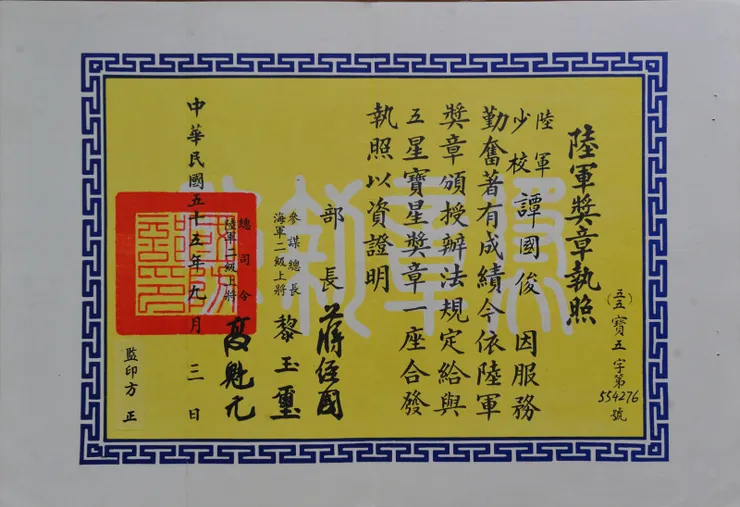 陸軍獎章執照
(五五)寶五字第554276號
陸軍少校譚國俊因服務
勤奮著有成績今依陸軍
獎章頒授辦法規定給與
五星寶星獎章一座合發
執照以資證明
部長蔣經國
參謀總長海軍二級上將黎玉璽
總司令陸軍二級上將高魁元
中華民國五十五年九月三日
監印方正